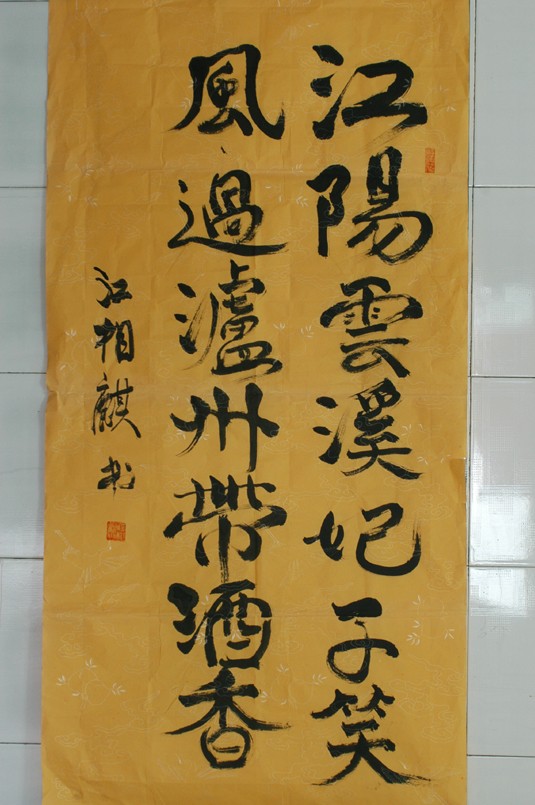 江陽雲溪妃子笑
風過瀘州帶酒香
江相麒书